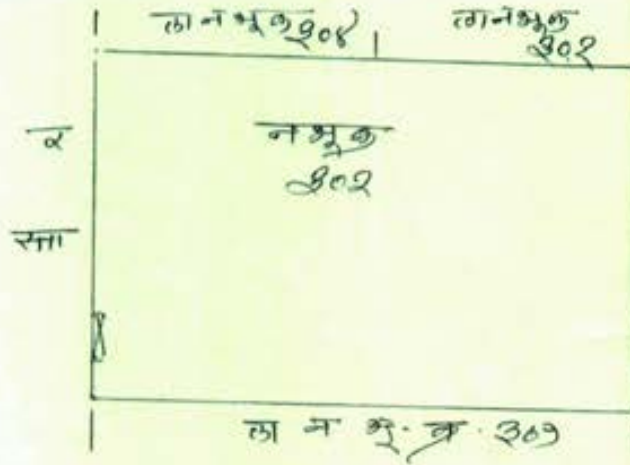 ला न भू क्र ३०४
ला न भू क्र ३०२
र
न भू क्र
३०२
स्ता
ला न भू. क्र. ३०१